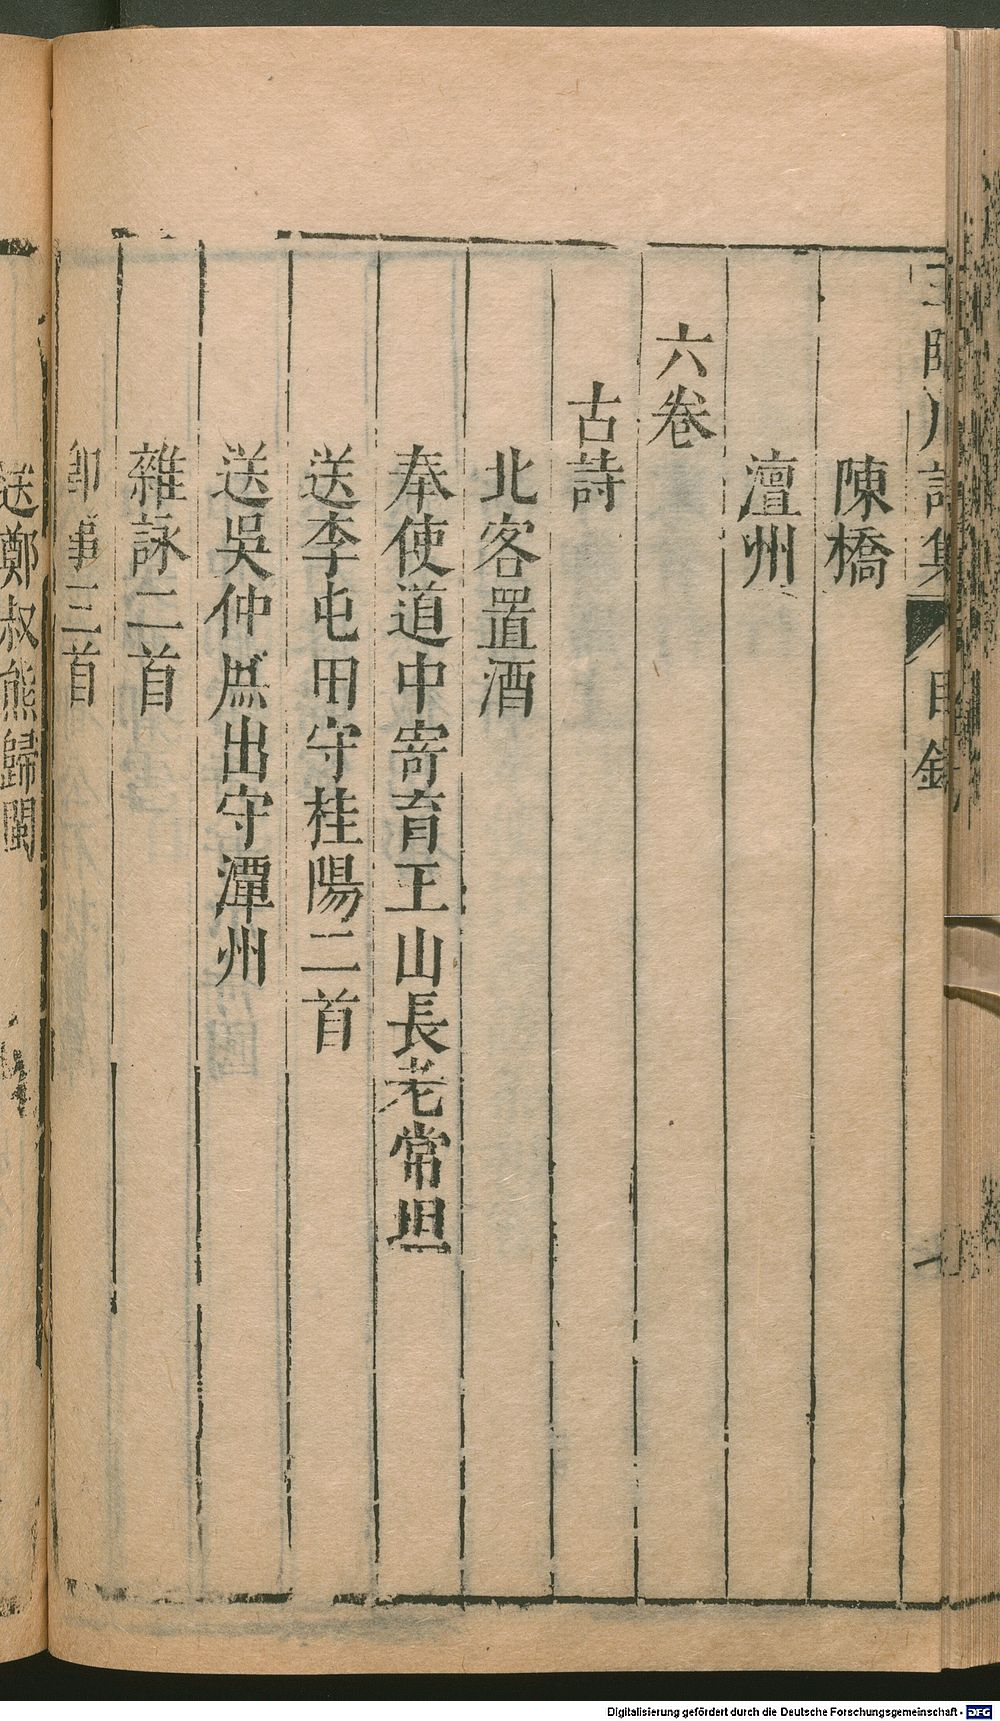 王臨川詩集 目錄
陳橋
澶州
六卷
古詩
北客置酒
奉使道中寄育王山長老常坦
送李屯田守桂陽二首
送吳仲庶出守潭州
雜詠二首
即事三首
送鄭叔熊歸閩
Digitalisierung gefördert durch die Deutsche Forschungsgemeinschaft - DFG